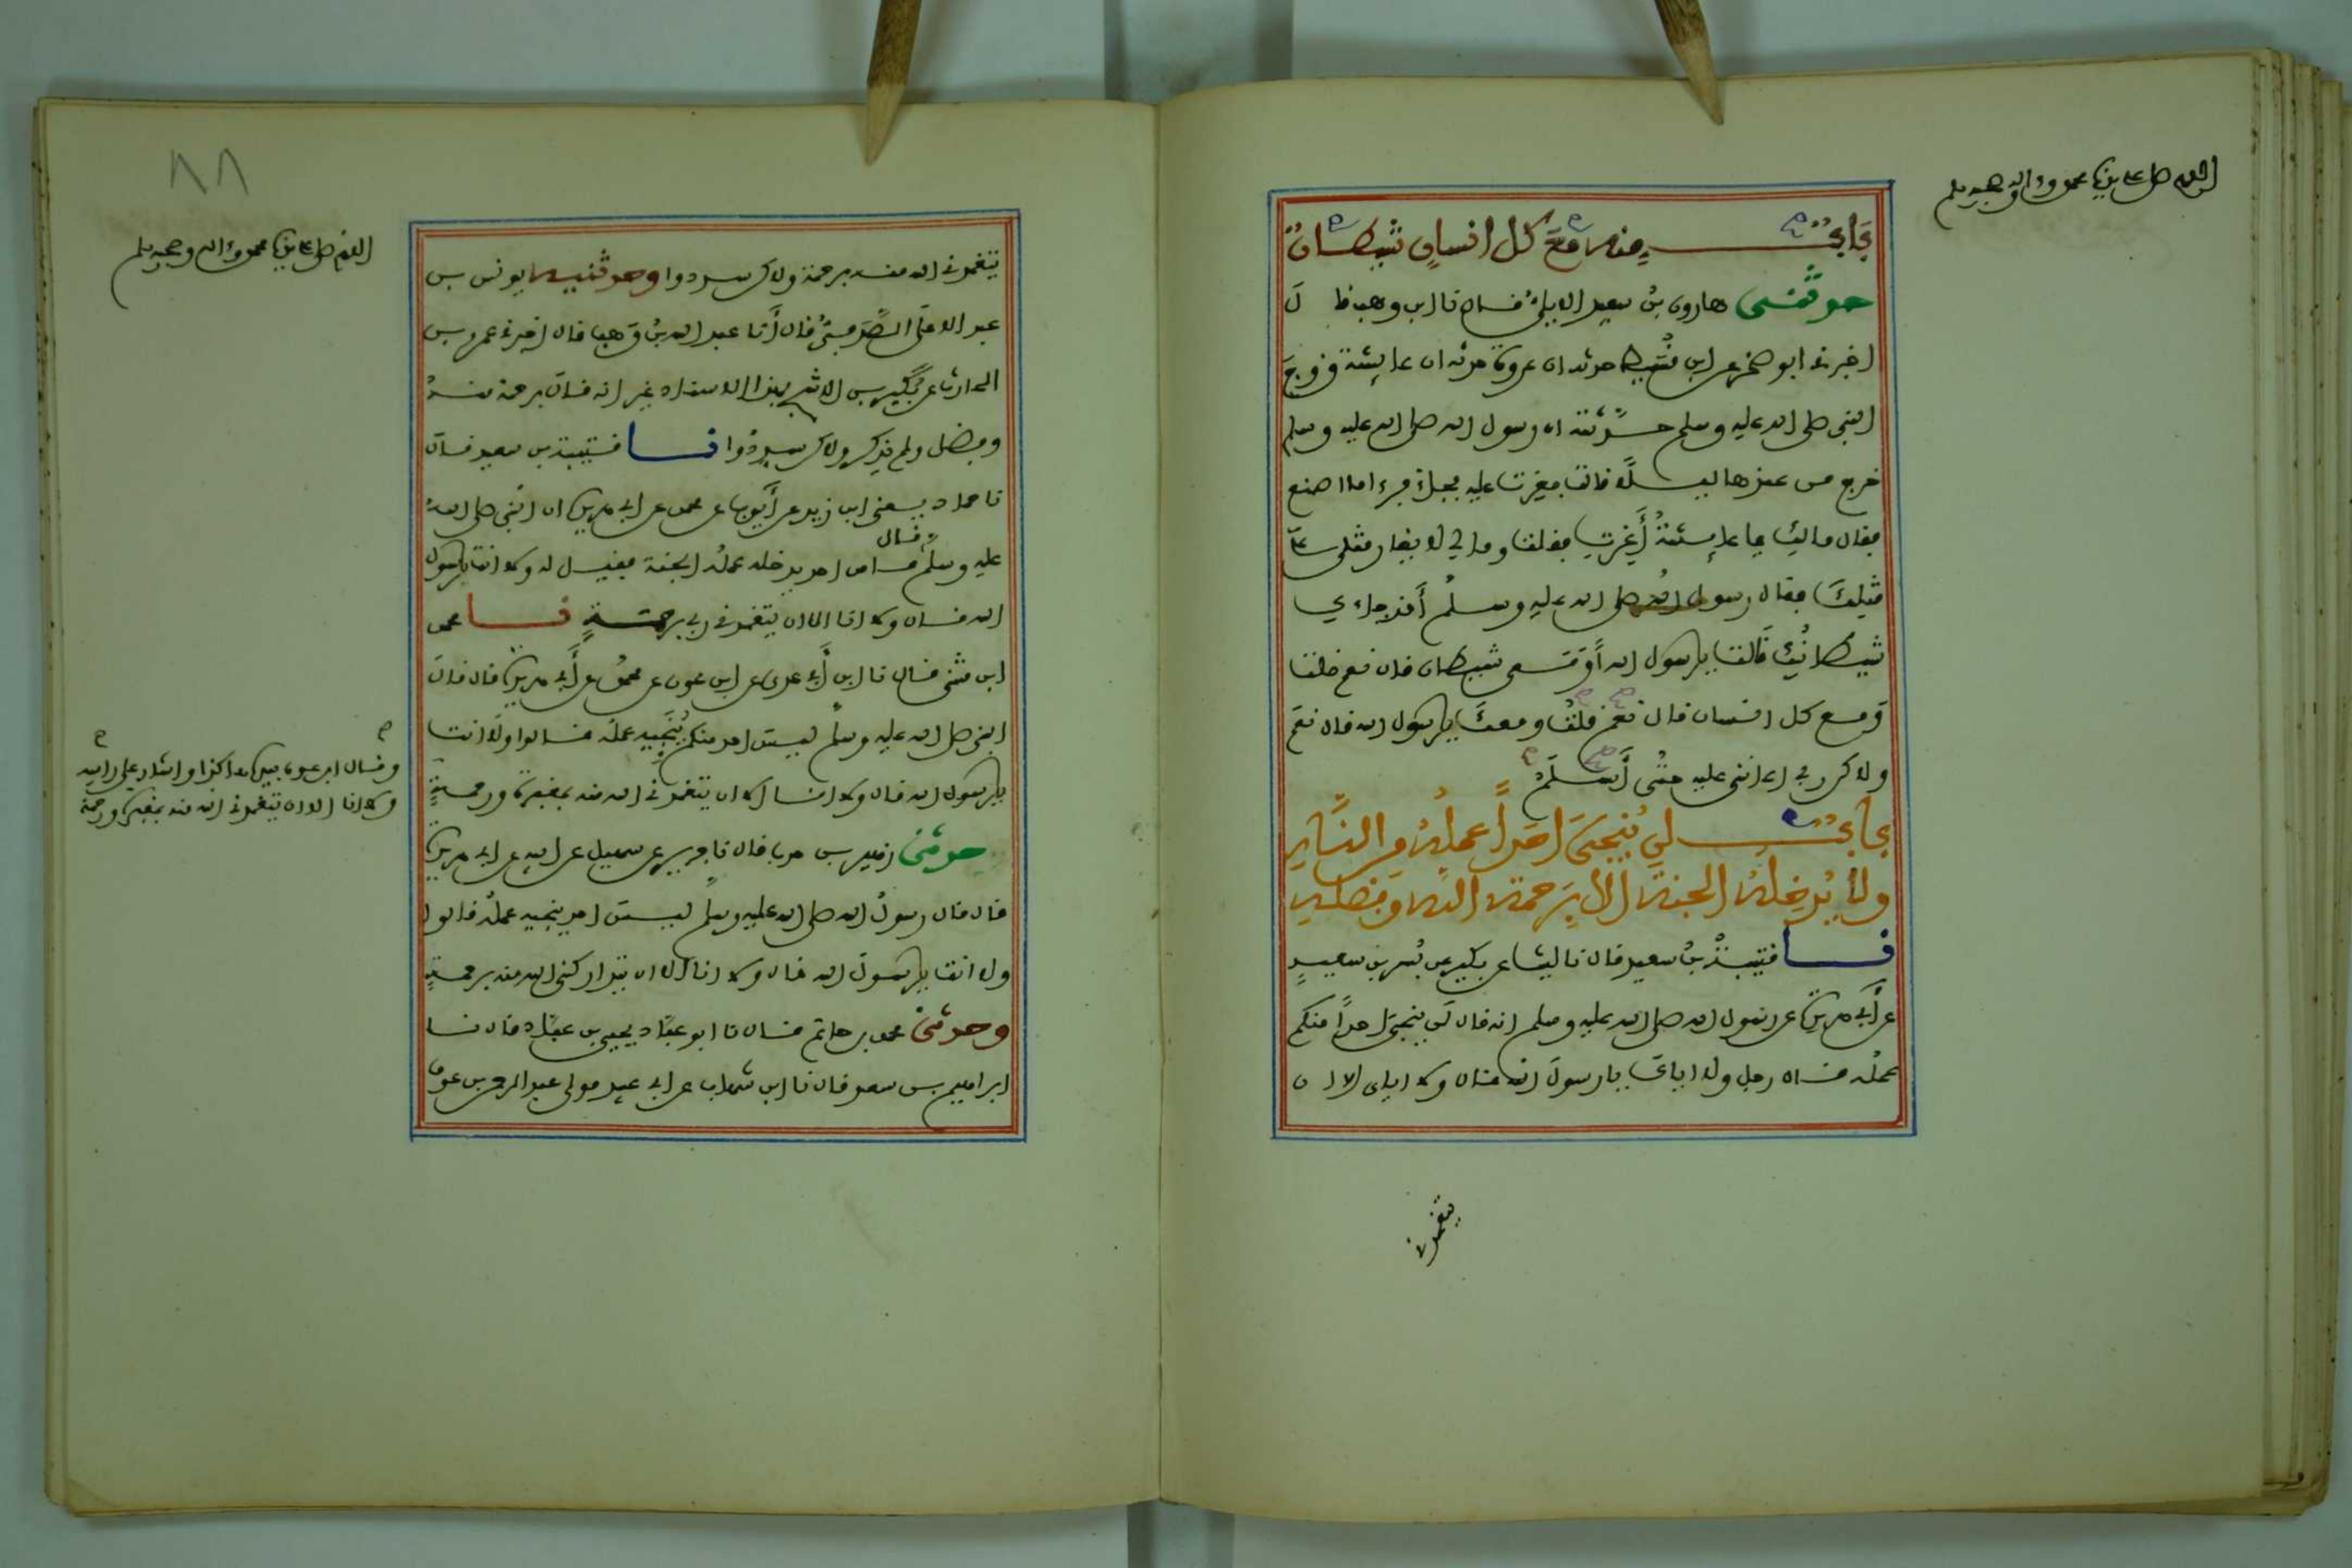 اللهم صل على سيدنا محمد وءاله وصحبه وسلم
باب منه مع كل إنسان شيطان
حدثني هارون بن سعيد الايلي قال نا ابن وهب قال
اخبرني ابو صخر عن ابن قسيط حدثه ان عروة حدثه ان عايشة زوج
النبي صلى الله عليه وسلم حدثته ان رسول الله صلى الله عليه وسلم
خرج من عندها ليلا قالت فغرت عليه فجاء فرءا ما اصنع
فقال مالك يا عايشة أغرت فقلت ومالي لا يغار مثلي على
مثلك فقال رسول الله صلى الله عليه وسلم أقد جاءك
شيطانك قالت يا رسول الله أو معي شيطان قال نعم قلت
ومع كل انسان قال نعم قلت ومعك يا رسول الله قال نعم
ولاكن ربي اعانني عليه حتى أسلم
باب لن ينجي احدا عمله من النار
ولا يدخله الجنة الا برحمة الله وفضله
نا قتيبة بن سعيد قال نا ليث عن بكير عن بسر بن سعيد
عن أبي هريرة عن رسول الله صلى الله عليه وسلم انه قال لن ينجي احدا منكم
عمله قال رجل ولا اياك يا رسول الله قال ولا اياي الا ان
يتغمدني
٨٨
اللهم صل على سيدنا محمد وءاله وصحبه وسلم
يتغمدني الله منه برحمة ولاكن سددوا وحدثنيه يونس بن
عبد الاعلى الصدفي قال أنا عبد الله بن وهب قال اخبرني عمرو بن
الحارث عن بكير بن الاشج بهذا الاسناد غير انه قال برحمة منه
وفضل ولم يذكر ولاكن سددوا نا قتيبة بن سعيد قال
نا حماد يعني ابن زيد عن أيوب عن محمد عن ابي هريرة ان النبي صلى الله
عليه وسلم قال ما من احد يدخله عمله الجنة فقيل له ولا انت يا رسول
الله قال ولا انا الا ان يتغمدني ربي برحمة نا محمد
ابن مثنى قال نا ابن أبي عدي عن ابن عون عن محمد عن أبي هريرة قال قال
النبي صلى الله عليه وسلم ليس احد منكم ينجيه عمله قالوا ولا انت
يا رسول الله قال ولا انا الا ان يتغمدني الله منه بمغفرة ورحمة
وقال ابن عون بيده هاكذا واشار على راسه
ولا انا الا ان يتغمدني الله منه بمغفرة ورحمة
حدثني زهير بن حرب قال نا جرير عن سهيل عن ابيه عن ابي هريرة
قال قال رسول الله صلى الله عليه وسلم ليس احد ينجيه عمله قالوا
ولا انت يا رسول الله قال ولا انا الا ان يتداركني الله منه برحمة
وحدثني محمد بن حاتم قال نا ابو عباد يحيى بن عباد قال نا
ابراهيم بن سعد قال نا ابن شهاب عن ابي عبيد مولى عبد الرحمن بن عوف